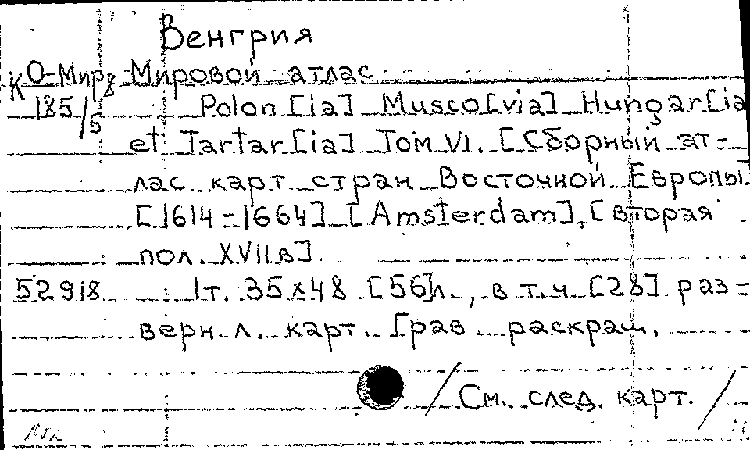 Венгрия
К О-Мир/8 Мировой атлас
185/5 Polon [ia] Musco[via] Hungar[ia
et Tartar[ia] Том VI. [Сборный ат-
лас карт стран Восточной Европы]
[1614-1664] [Amsterdam], [вторая
пол. XVII в]
52918 1т. 35x48 [56]л., в т.ч. [28] раз-
верн. л. карт. Грав раскраш.
/См. след. карт./